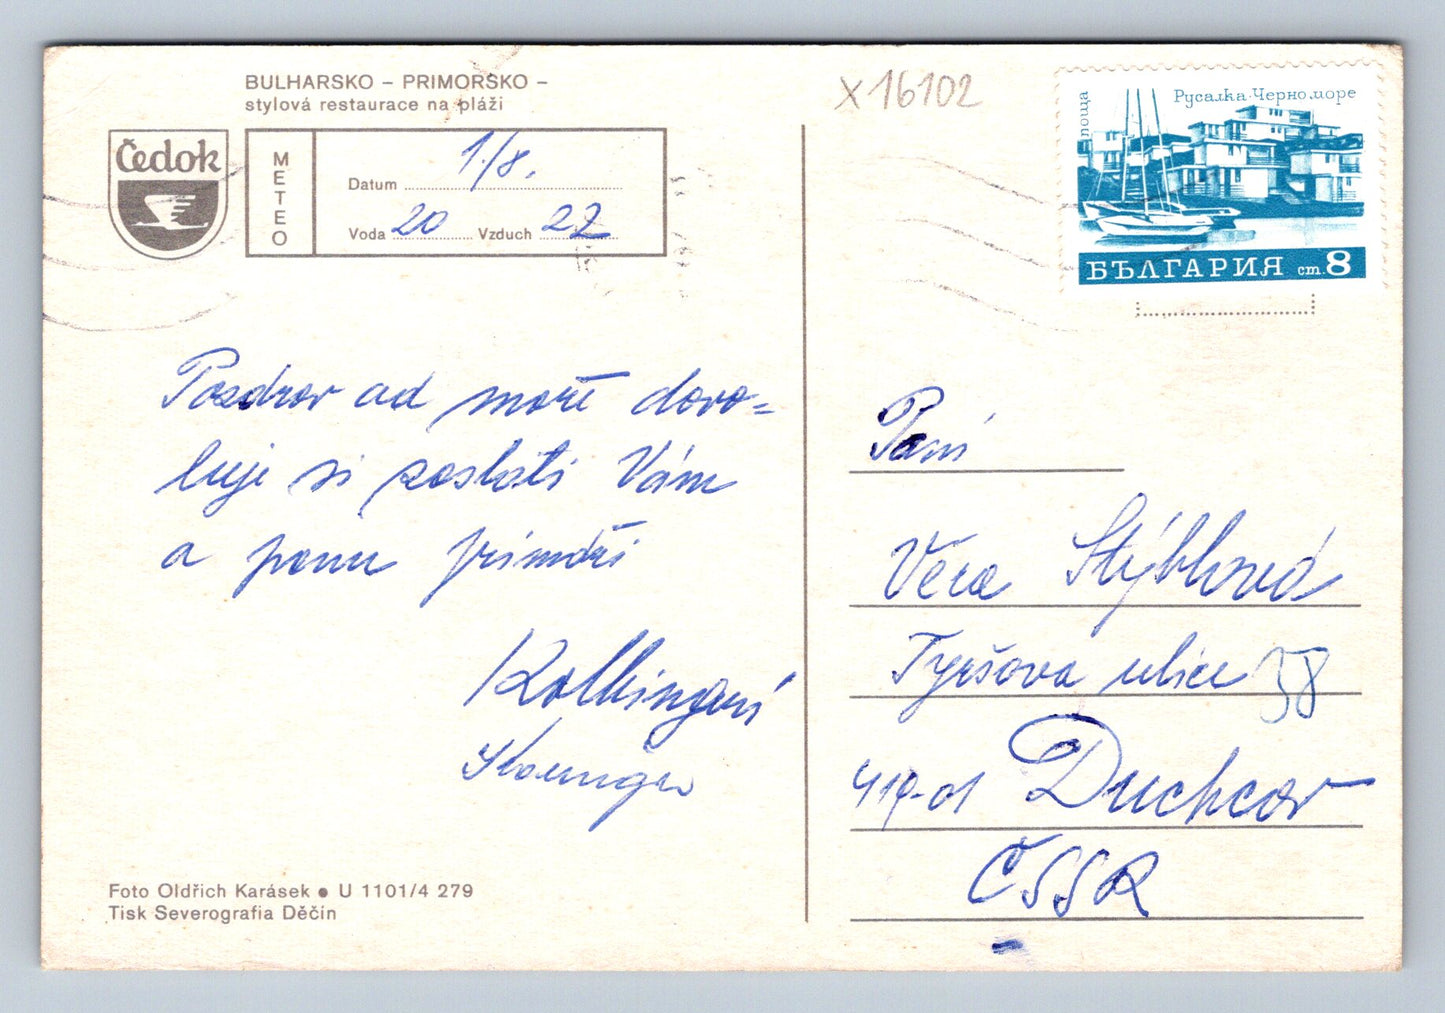 BULHARSKO – PRIMORSKO –
stylová restaurace na pláži
Čedok
METEO
Datum 1./8.
Voda 20 Vzduch 22
Pozdrav od moře dovo=
luje si zaslati Vám
a panu primáři
Foto Oldřich Karásek ● U 1101/4 279
Tisk Severografia Děčín
X 16102
поща
Русалка-Черно море
БЪЛГАРИЯ ст.8
Paní
Věra Stýblová
Tyršova ulice 58
419-01 Duchcov
ČSSR